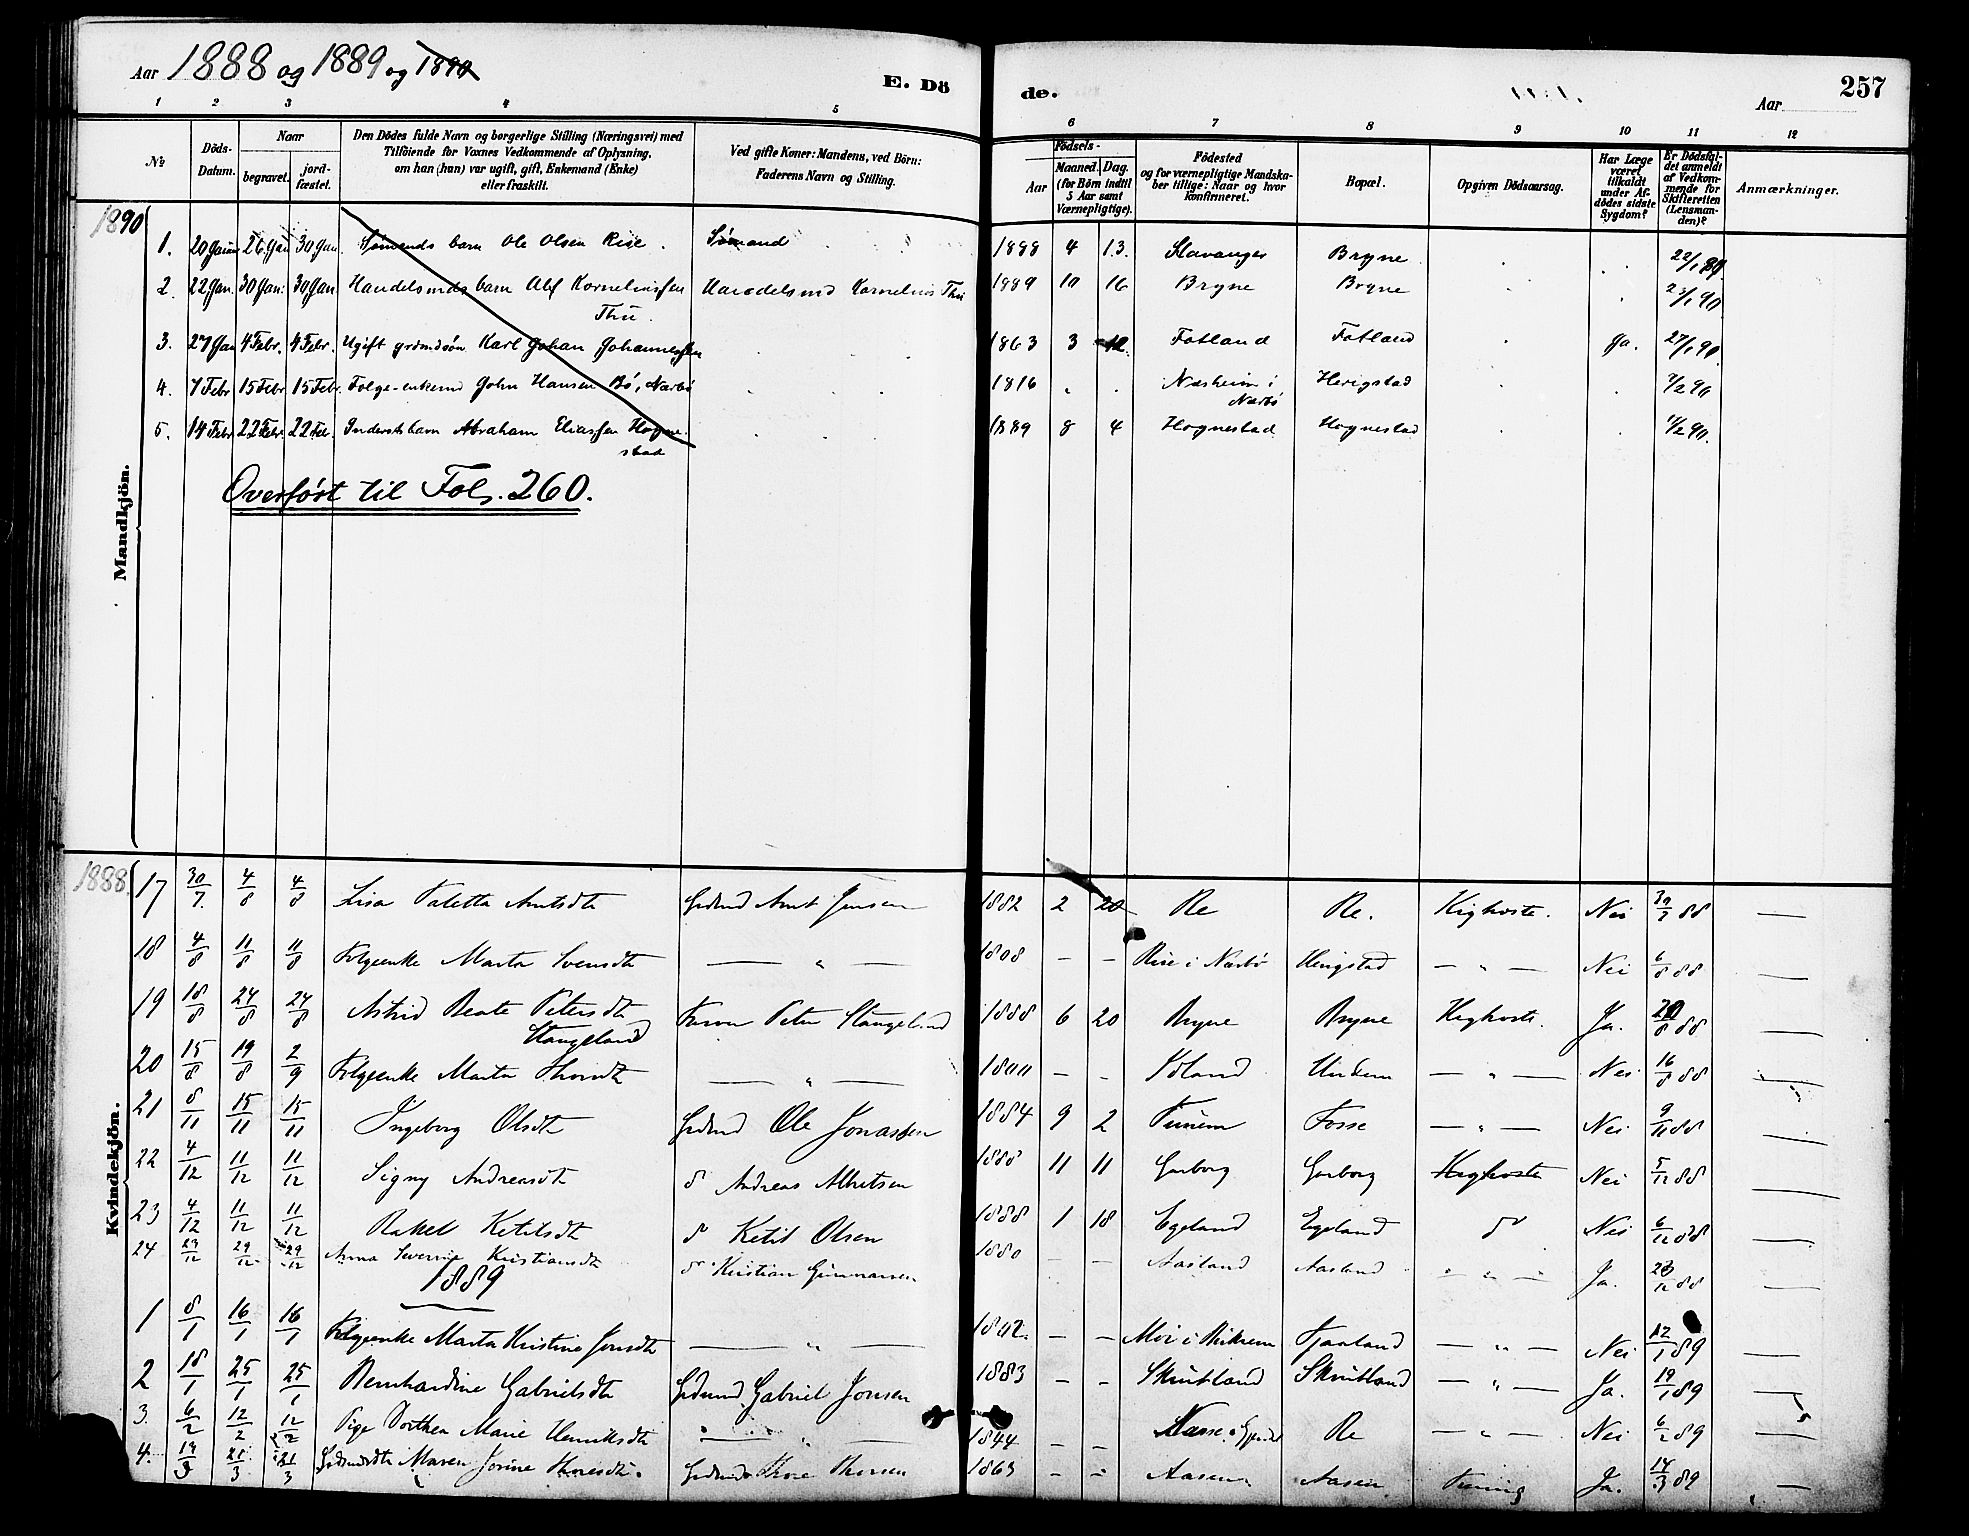 Aar 1888 og 1889 og 1890
E. Dö
de.
Aar
257
1 2 3 4 5 6 7 8 9 10 11 12
No
Döds-Datum.
Naar
begravet.
jord-fæstet.
Den Dödes fulde Navn og borgerlige Stilling (Næringsvei) med
Tilföiende for Voxnes Vedkommende af Oplysning,
om han (hun) var ugift, gift, Enkemand (Enke)
eller fraskilt.
Ved gifte Koner: Mandens, ved Börn:
Faderens Navn og Stilling.
Födsels-
Aar
Maaned. Dag.
(for Börn indtil
5 Aar samt
Værnepligtige).
Födested
og for værnepligtige Mandska-
ber tillige: Naar og hvor
konfirmeret.
Bopæl.
Opgiven Dödsaarsag.
Har Læge
været
tilkaldt
under Af-
dödes sidste
Sygdom?
Er Dödsfal-
det anmeldt
af Vedkom-
mende for
Skifteretten
(Lensman-
den)?
Anmærkninger.
1890
Mandkjön.
1. 20 Januar 26 Jan 30 Jan. Sömands barn Ole Olsen Rise. Sömand 1888 4 13. Stavanger Bryne 22/1 90
2. 22 Jan. 30 Jan. 30 Jan Handelsmds barn Alf Kornelinssen Handelsmd Kornelius Thu 1889 10 16 Bryne Bryne 23/1 90
Thu.
3. 27 Jan 4 Febr. 4 Febr. Ugift grdmdsön Karl Johan Johannessen 1863 3 12. Fotland Fotland Ja. 27/1 90
4. 7 Febr 15 Febr 15 Febr. Folge-enkemd John Hansen Bö, Nærbö 1816 Næsheim i Herigstad 7/2 90
Nærbö
5. 14 Febr 22 Febr. 22 Feb. Inderstsbarn Abraham Eliassen Hogne- 1889 8 4 Hognestad Hognestad 14/2 90.
stad
Overført til Fol. 260.
1888
Kvindekjön.
17 30/7 4/8 4/8 Lisa Taletta Arntsdtr Grdmd Arnt Jensen 1882 2 20 Re Re. Kighoste. Nei 30/7 88 —
18 4/8 11/8 11/8 Folgeenke Marta Svensdtr — " — 1808 — — Rise i Nærbö Herigstad — " — Nei 6/8 88 —
19 18/8 24/8 24/8 Astrid Beate Petersdtr Peter Stangeland 1888 6 20 Bryne Bryne Kighoste. Ja. 20/8 88 —
Stangeland
20 15/8 19/8 2/9 Folgeenke Marta — " — 1800 — — Undem — " — Nei 16/8 88 —
21 8/11 15/11 15/11 Ingeborg Olsdtr Grdmd Ole Jonassen 1884 9 2 Tunem Fosse — " — Nei 9/11 88 —
22 4/12 11/12 11/12 Signy Andreasdtr do Andreas Albretsen 1888 11 11 Garborg Garborg Kighoste Nei 5/12 88 —
23 4/12 11/12 11/12 Rakel Ketilsdtr do Ketil Olsen 1888 1 18 Egeland Egeland do Nei 6/12 88 —
24 23/12 29/12 29/12 Anna Severine Kristiansdtr do Kristian Gunnarsen 1880 — — Aasland Aasland — " — Ja. 23/12 88 —
1889
1 8/1 16/1 16/1 Folgeenke Marta Kristine Jonsdtr — " — 1802 — — Moi i Bjkrem Fjaaland — " — Nei 12/1 89 —
2 18/1 25/1 25/1 Bernhardine Gabrielsdtr Grdmd Gabriel Jonsen 1883 — — Skrudland Skrudland — " — Ja. 19/1 89 —
3. 6/2 12/2 12/2 Pige Dorthea Marie Henriksdtr — " — 1844 — — Re — " — Nei 6/2 89 —
4. 13/3 21/3 21/3 Grdmdsdtr Maren Jorine Thoresdtr. Grdmd Thore Thorsen 1863 — — Aasen Aasen Tæring Ja. 14/3 89 —